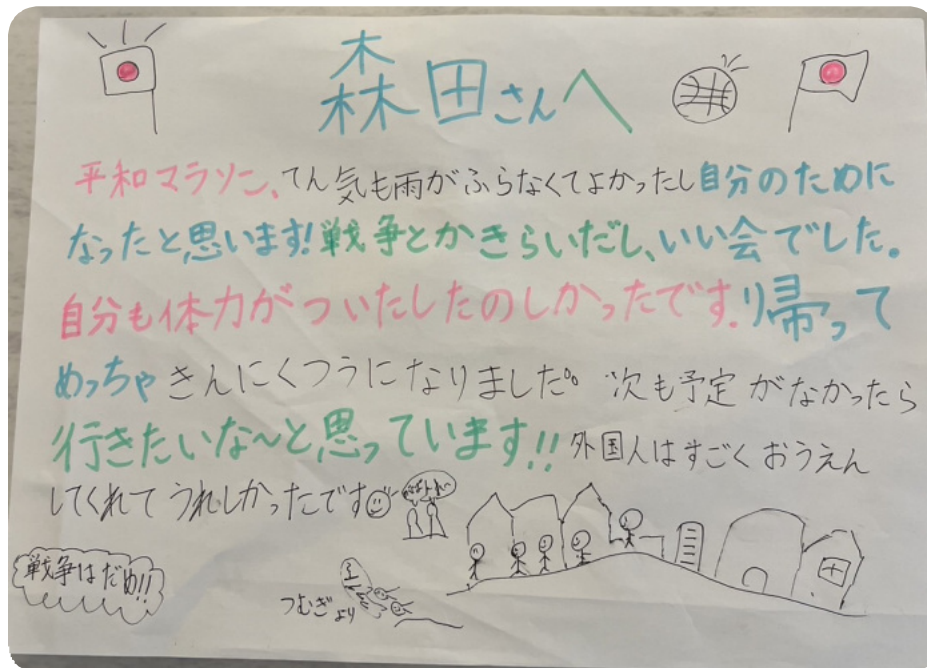 森田さんへ
平和マラソン、てん気も雨がふらなくてよかったし自分のために
なったと思います!戦争とかきらいだし、いい会でした。
自分も体力がついたしたのしかったです.帰って
めっちゃきんにくつうになりました。次も予定がなかったら
行きたいな〜と思っています!!外国人はすごくおうえん
してくれてうれしかったです
がんばれ〜
戦争はだめ!!
つむぎより